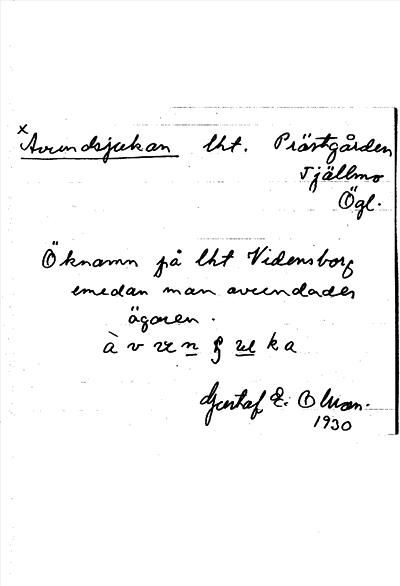 x Avundsjukan lht. Prästgården
Tjällmo
Ögl.
Öknamn på lht Vidensborg
emedan man avundades
ägaren.
Gustaf E. Olson.
1930